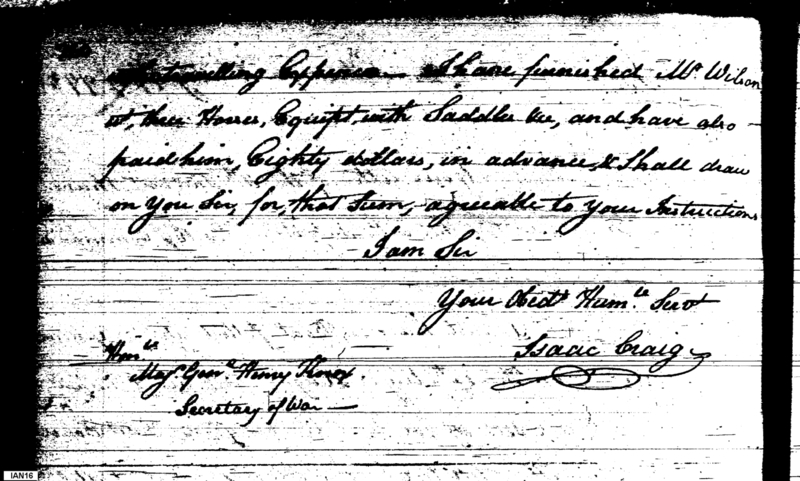 travelling Expences — I have furnished Mr Wilson
three Horses, Equipt, with Saddles &c, and have also
paid him, Eighty dollars, in advance, & Shall draw
on You Sir, for, that Sum, agreeable to Your Instructions
I am Sir
Your Obedt. Humle. Servt
Isaac Craig
Honle.
Majr. Genl. Henry Knox.
Secretary of War —
IAN16